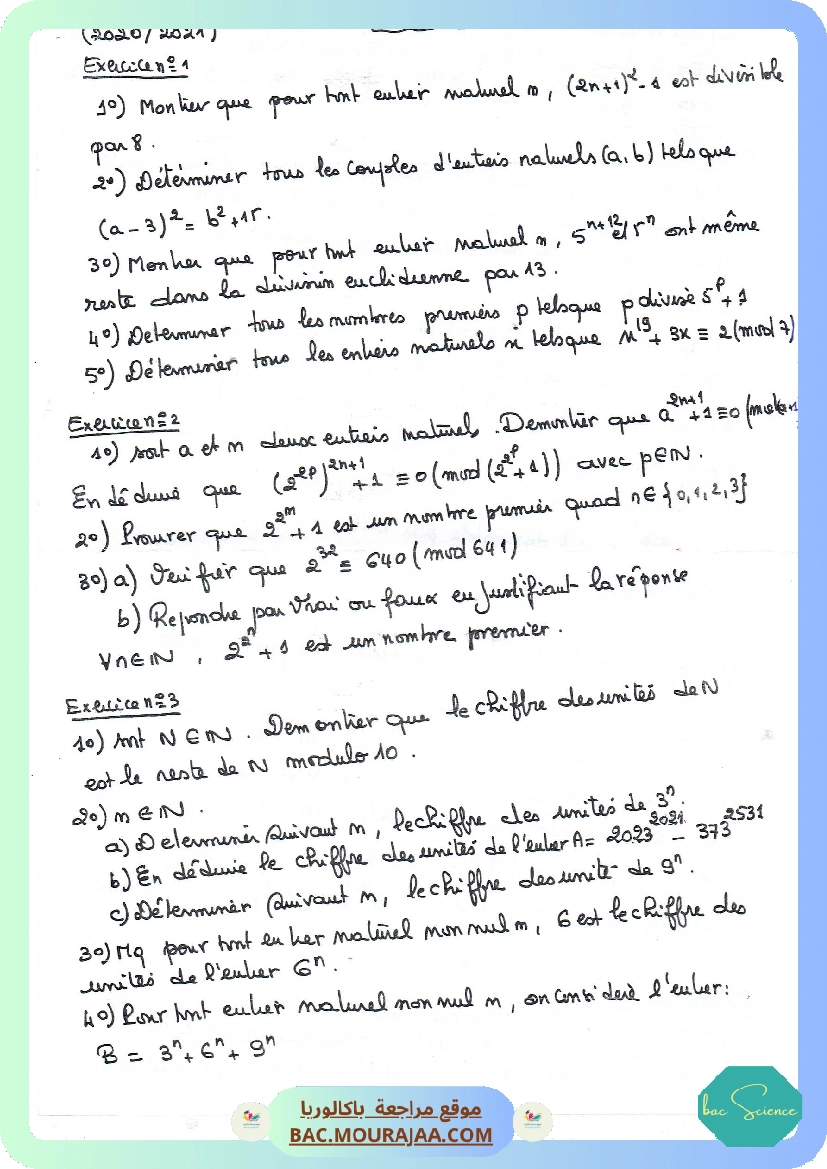 (2020/2021)
Exercice n°1
1°) Montrer que pour tout entier naturel n, (2n+1)² - 1 est divisible
par 8.
2°) Déterminer tous les couples d'entiers naturels (a, b) tels que
(a - 3)² = b² + 15.
3°) Montrer que pour tout entier naturel n, 5ⁿ⁺¹² et 5ⁿ ont même
reste dans la division euclidienne par 13.
4°) Determiner tous les nombres premiers p tels que p divise 5ᵖ + 1
5°) Déterminer tous les entiers naturels x tels que x¹⁹ + 3x ≡ 2 (mod 7)
Exercice n°2
1°) soit a et n deux entiers naturels. Demontrer que a²ⁿ⁺¹ + 1 ≡ 0 (mod a+1
En déduire que (2^2^p)^2n+1 + 1 ≡ 0 (mod (2^2^p + 1)) avec p ∈ ℕ.
2°) Prouver que 2^2^n + 1 est un nombre premier quad n ∈ {0, 1, 2, 3}
3°) a) Verifier que 2³² ≡ 640 (mod 641)
b) Repondre par Vrai ou faux en justifiant la réponse
∀n ∈ ℕ, 2^2^n + 1 est un nombre premier.
Exercice n°3
1°) Soit N ∈ ℕ. Demontrer que le chiffre des unités de N
est le reste de N modulo 10.
2°) n ∈ ℕ.
a) Determiner suivant n, le chiffre des unités de 3ⁿ.
b) En déduire le chiffre des unités de l'entier A = 2023²⁰²¹ - 373²⁵³¹
c) Déterminer suivant n, le chiffre des unité de 9ⁿ.
3°) Mq pour tout entier naturel non nul n, 6 est le chiffre des
unités de l'entier 6ⁿ.
4°) Pour tout entier naturel non nul n, on considère l'entier:
B = 3ⁿ + 6ⁿ + 9ⁿ
bac Science
موقع مراجعة باكالوريا
BAC.MOURAJAA.COM